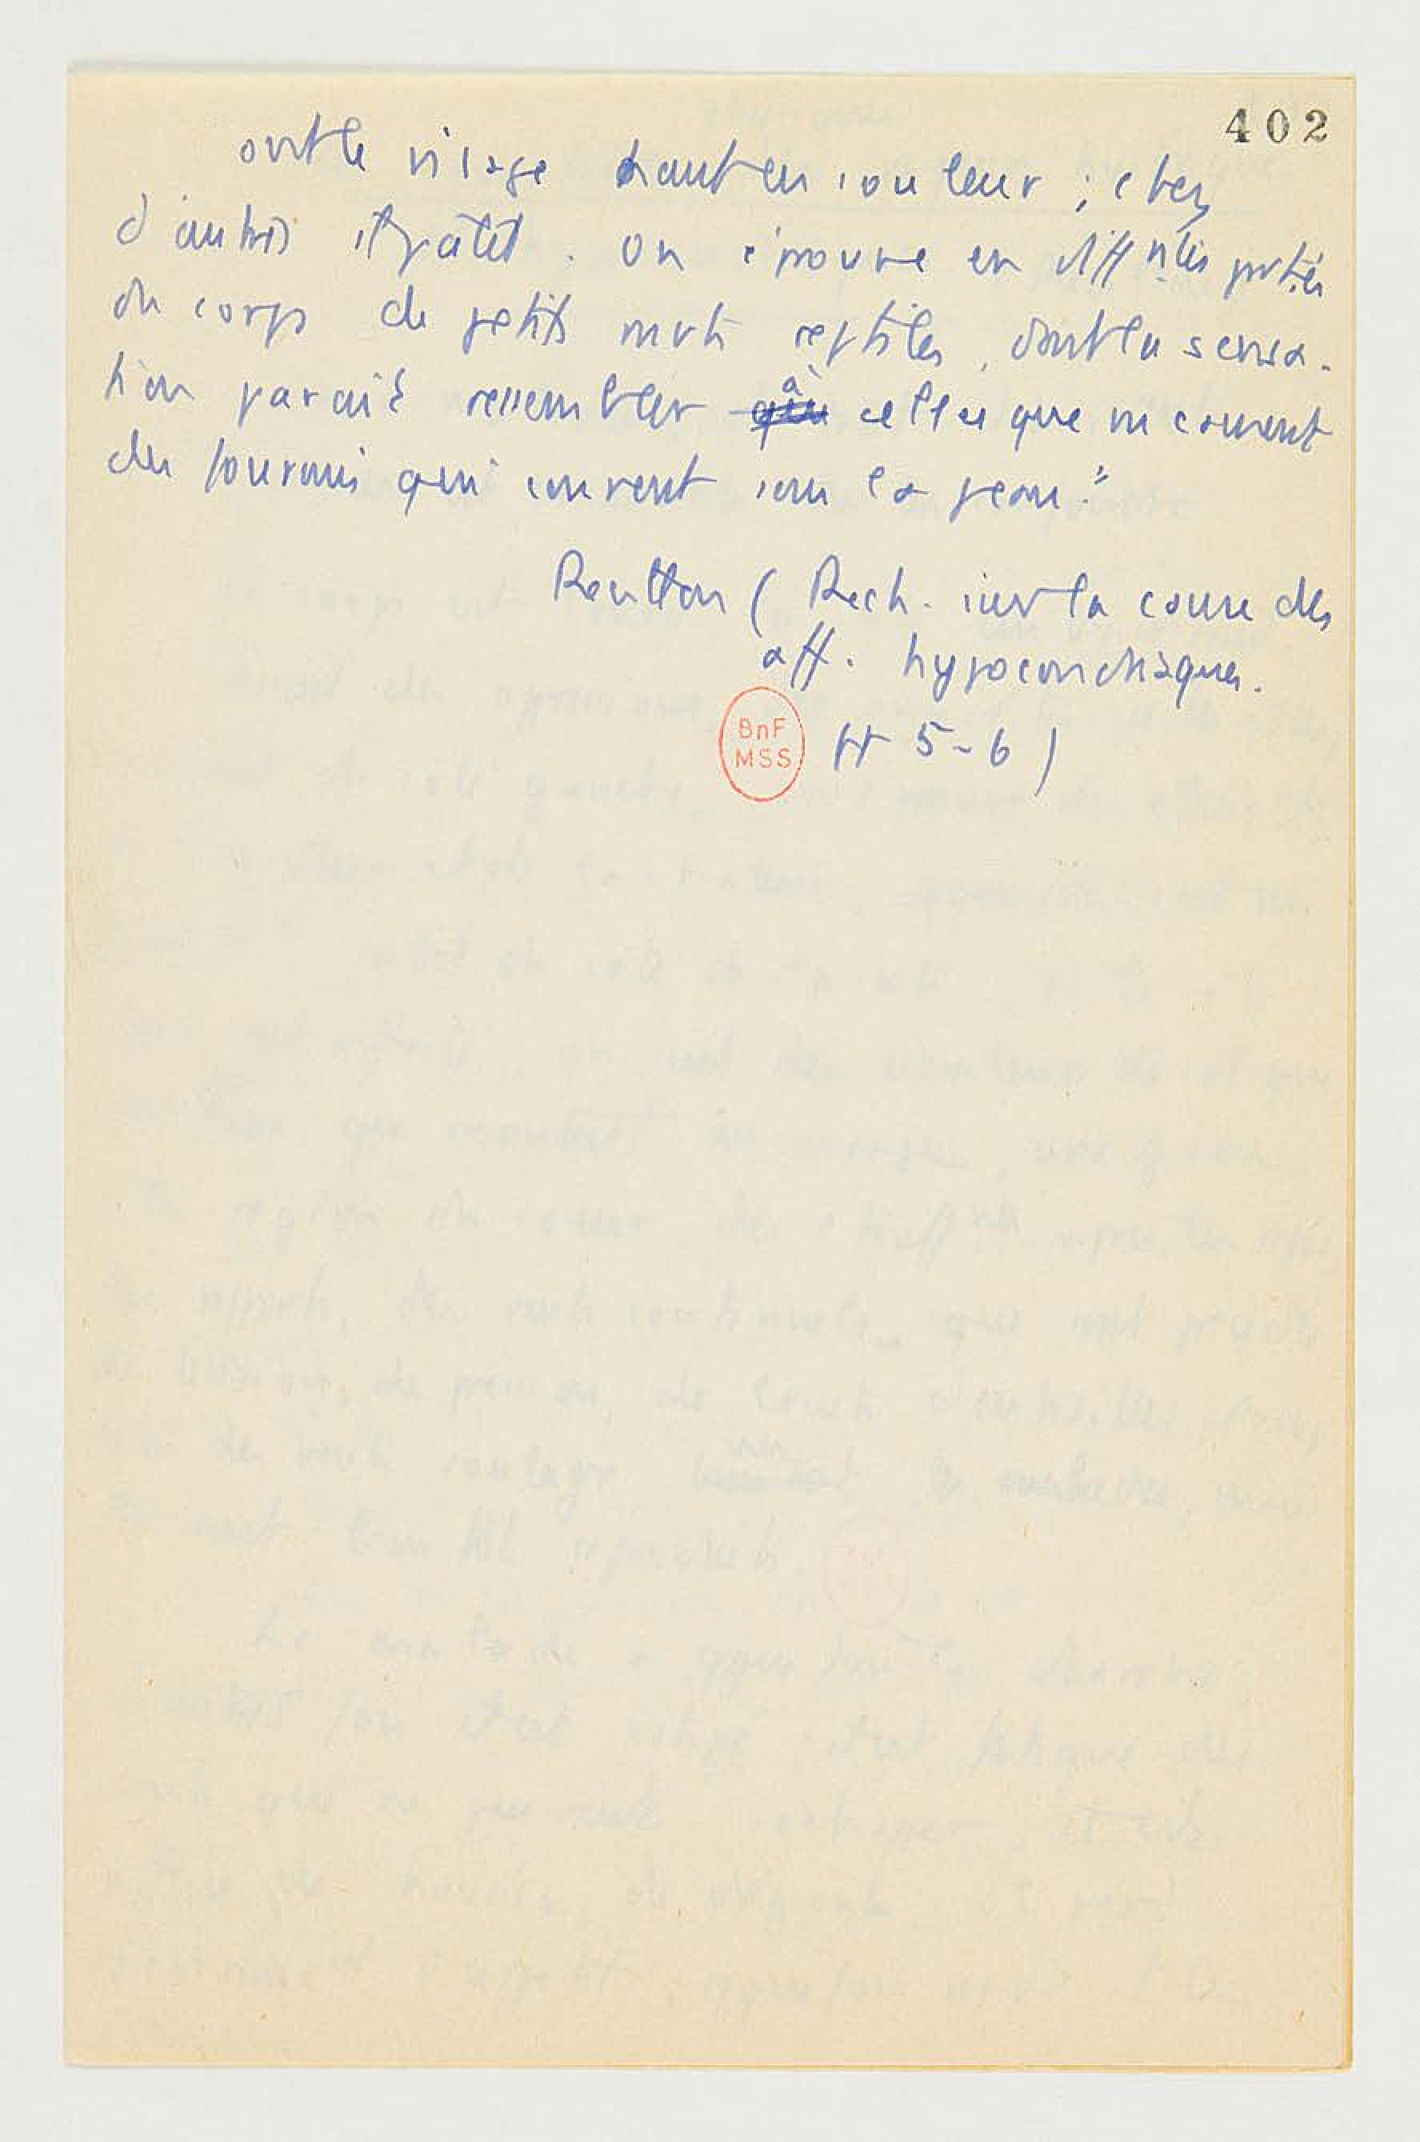 402
ont le visage haut en couleur ; chez
d'autres il pâlit. On éprouve en diff ntes parties
du corps de petits mvts reptiles, dont la sensa-
tion paraît ressembler à celles que
des fourmis qui courent sous la peau."
(Rech. sur la cause des
aff. hypocondriaques.
5-6)
BnF
MSS